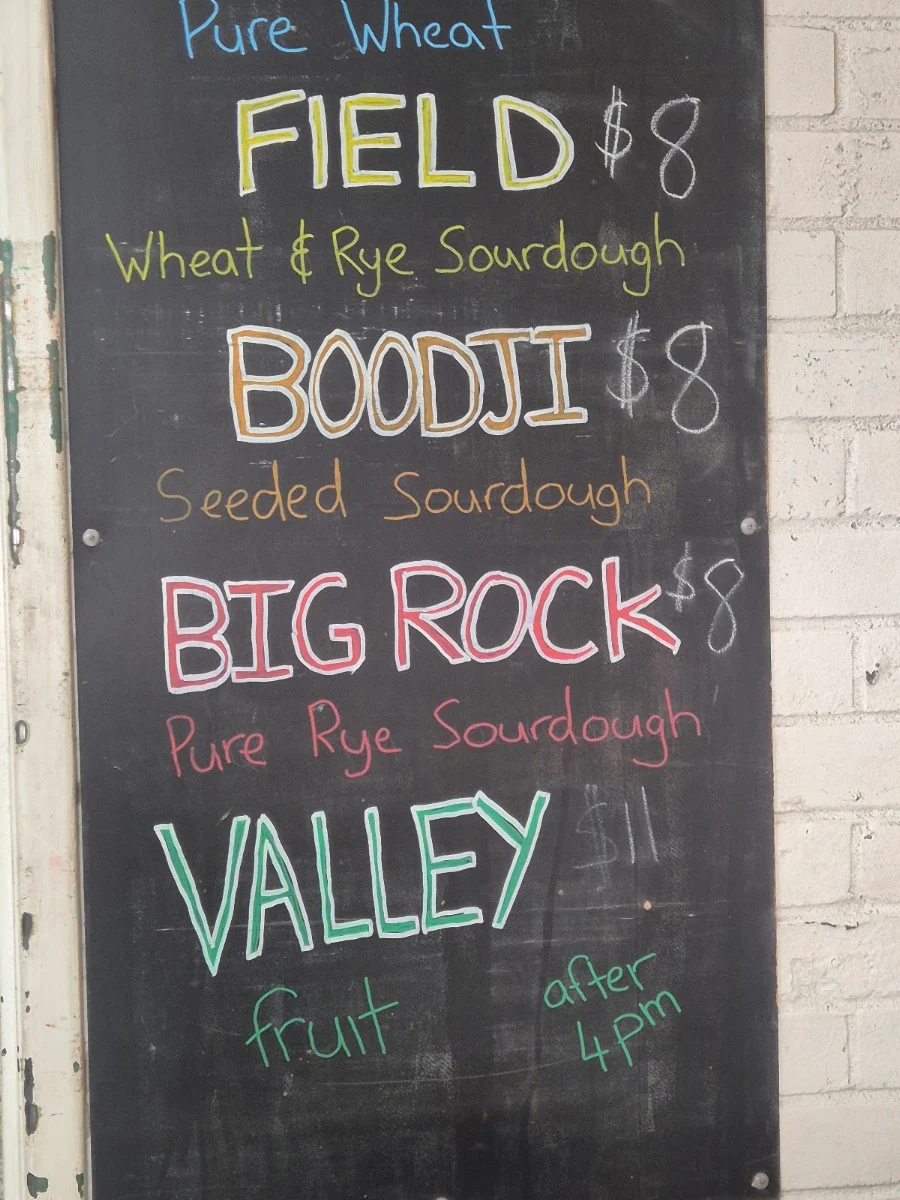 Pure Wheat
FIELD $8
Wheat & Rye Sourdough
BOODJI $8
Seeded Sourdough
BIG ROCK $8
Pure Rye Sourdough
VALLEY $11
fruit after
4pm